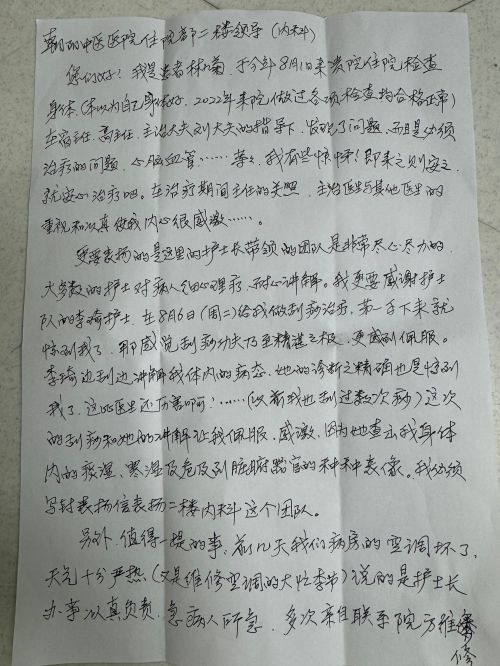 朝阳中医医院住院部二楼领导（内科）
您们好！我是患者林菊，于今年8月1日来贵院住院检查
身体，（本以为自己身体好，2022年来院做过各项检查均合格正常）
在宿主任、高主任、主治大夫刘大夫的指导下，发现了问题，而且是必须
治疗的问题，心脑血管……等。我有些惊吓！即来之则安之，
就安心治疗吧。在治疗期间主任的关照、主治医生与其他医生的
重视和认真使我内心很感激……。
更要表扬的是这里的护士长带领的团队是非常尽心尽力的，
大多数的护士对病人细心理疗、耐心讲解。我更要感谢护士
队的李琦护士，在8月6日（周二）给我做刮痧治疗，第一手下来就
惊到我了，那感觉刮痧功夫乃至精湛之极，更感到佩服。
李琦边刮边讲解我体内的病态，她的诊断之精确也是惊到
我了，这比医生还厉害啊？……（以前我也刮过数次痧）这次
的刮痧和她的讲解让我佩服、感激，因为她查出我身体
内的痰湿、寒湿及危及到脏腑器官的种种表像。我必须
写封表扬信表扬二楼内科这个团队。
另外，值得一提的事，前几天我们病房的空调坏了，
天气十分严热（又是维修空调的大忙季节）说的是护士长
办事认真负责，急病人所急，多次亲自联系院方维
修